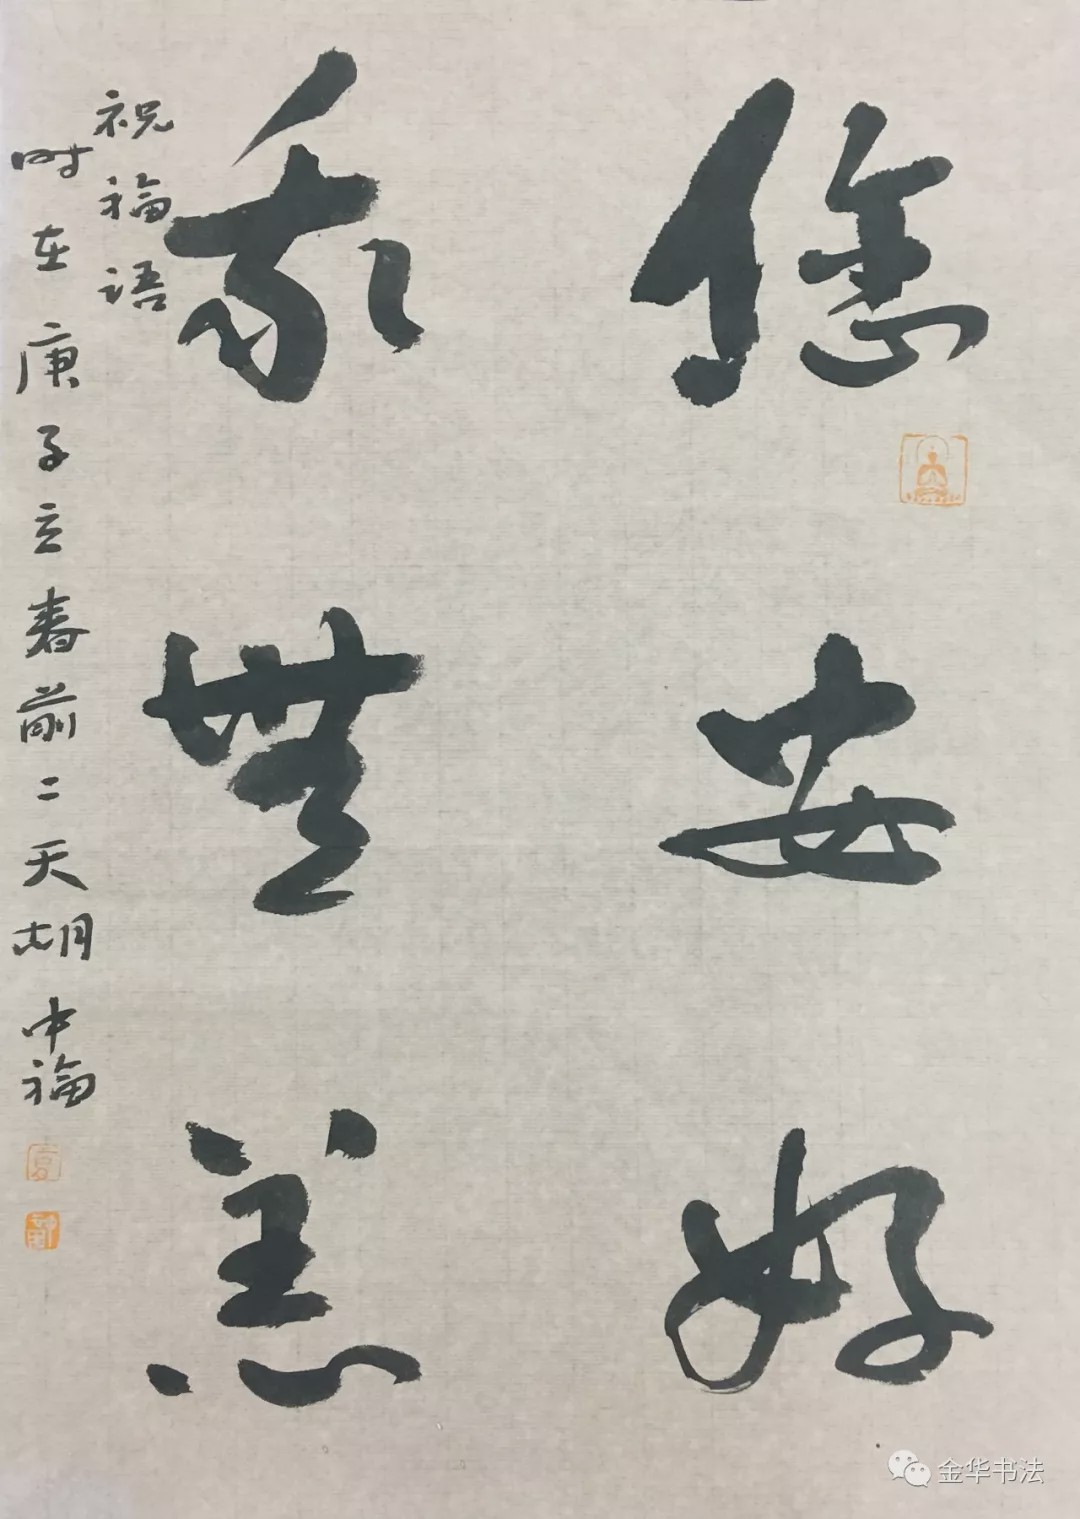 您安好
我無恙
祝福语
时在庚子立春前二天胡中福
金华书法